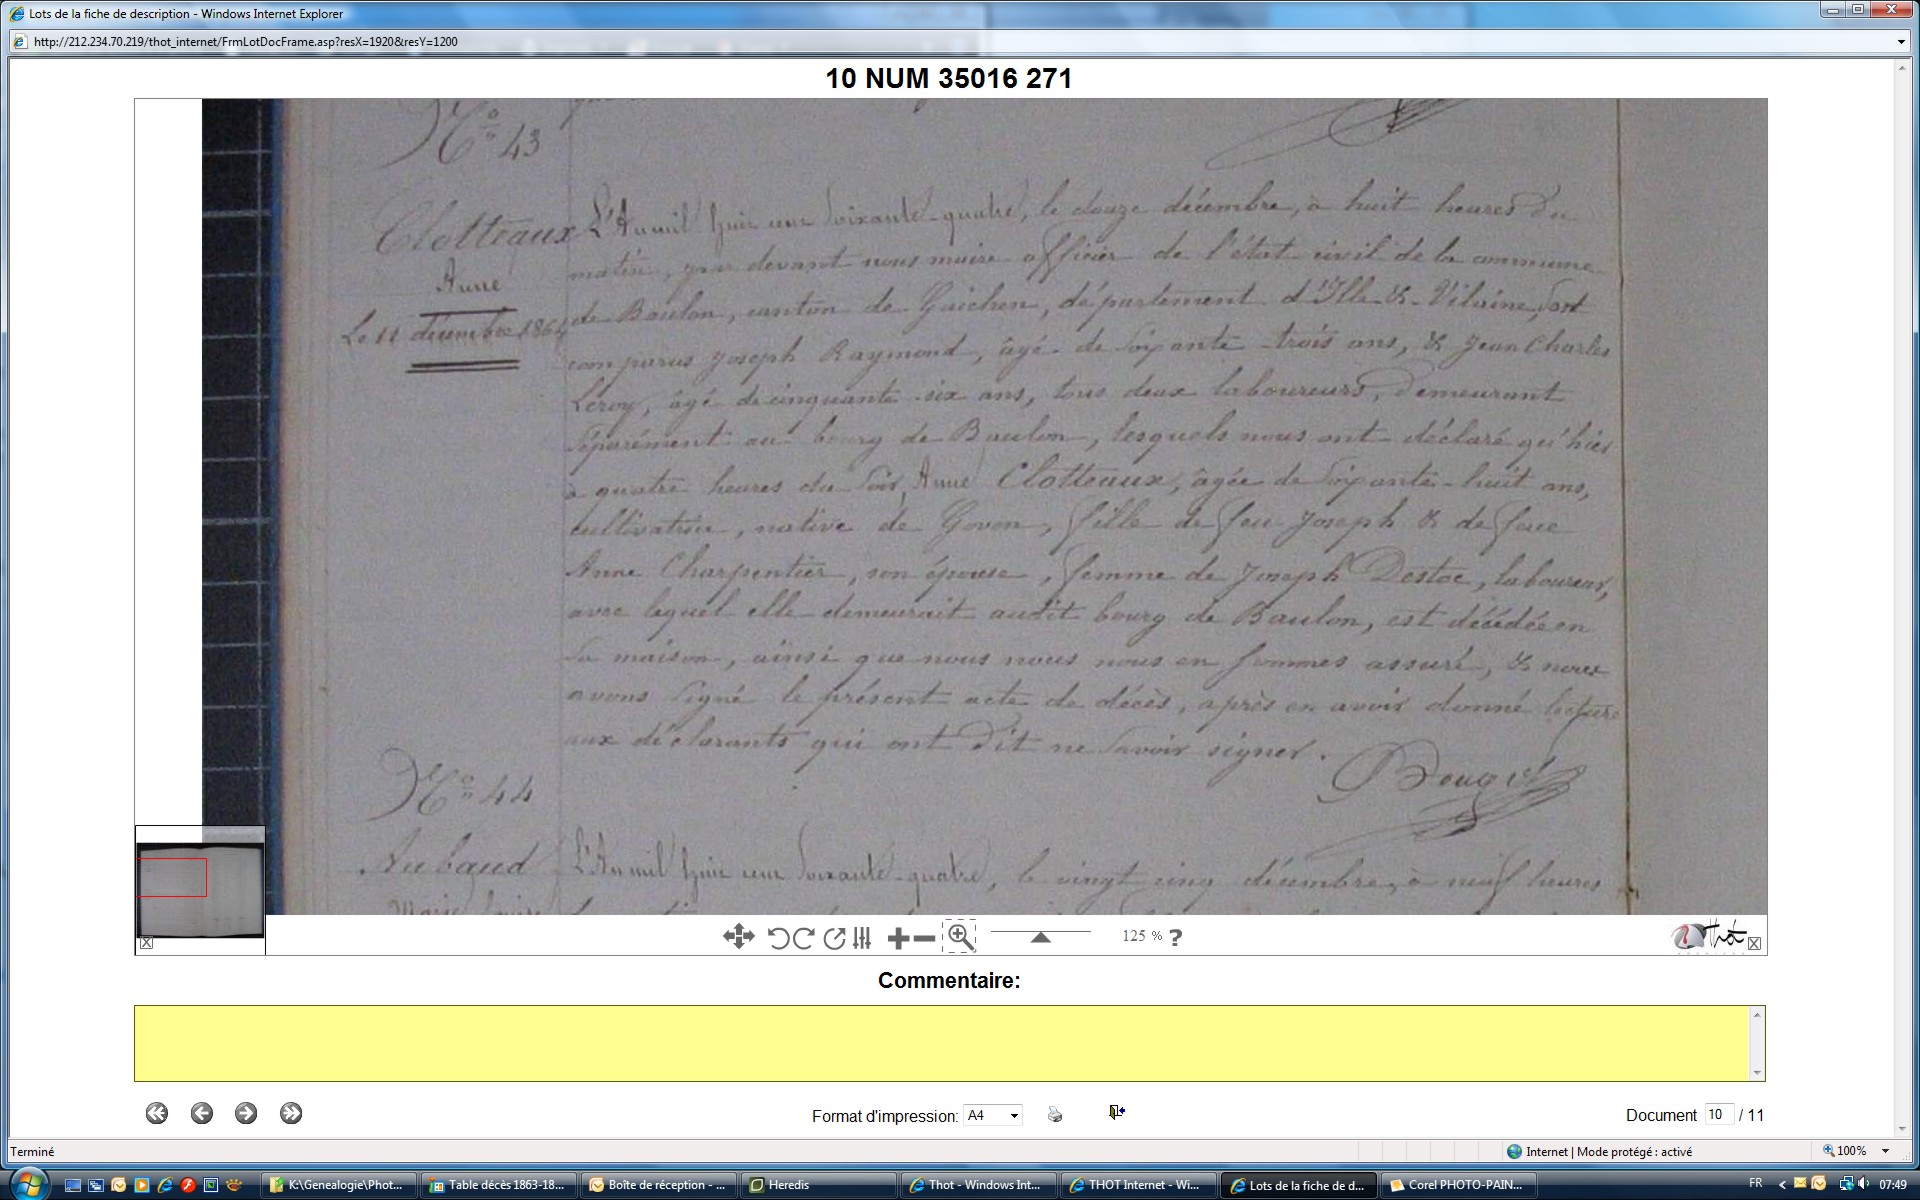 Lots de la fiche de description - Windows Internet Explorer
http://212.234.70.219/thot_internet/FrmLotDocFrame.asp?resX=1920&resY=1200
10 NUM 35016 271
Nº 43
Clotteaux
Anne
Le 11 décembre 1864
L'An mil huit cent soixante-quatre, le douze décembre, à huit heures du
matin, par devant nous maire officier de l'état civil de la commune
de Baulon, canton de Guichen, département d'Ille-&-Vilaine, sont
comparus Joseph Raymond, âgé de soixante-trois ans, & Jean Charles
Leroy, âgé de cinquante-six ans, tous deux laboureurs, demeurant
séparément au bourg de Baulon, lesquels nous ont déclaré qu'hier
à quatre heures du soir, Anne Clotteaux, âgée de soixante-huit ans,
cultivatrice, native de Goven, fille de feu Joseph & de feue
Anne Charpentier, son épouse, femme de Joseph Destoc, laboureur,
avec lequel elle demeurait audit bourg de Baulon, est décédée en
sa maison, ainsi que nous nous nous en sommes assuré, & nous
avons signé le présent acte de décès, après en avoir donné lecture
aux déclarants qui ont dit ne savoir signer.
Nº 44
Aubaud
L'An mil huit cent soixante-quatre, le vingt cinq décembre, à neuf heures
125 % ?
Thot
Commentaire:
Format d'impression: A4
Document 10 / 11
Terminé
Internet | Mode protégé : activé
100%
K:\Genealogie\Phot...
Table décès 1863-18...
Boîte de réception - ...
Heredis
Thot - Windows Int...
THOT Internet - Wi...
Lots de la fiche de d...
Corel PHOTO-PAIN...
FR
07:49